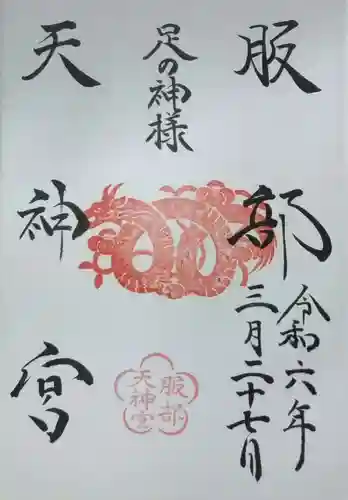 服部
天神宮
足の神様
令和六年
三月二十七日
服部
天神宮